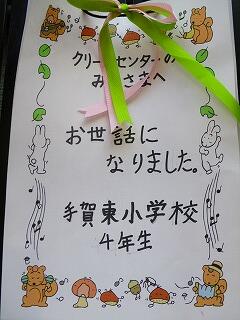 クリーンセンターの
みなさまへ
お世話に
なりました。
手賀東小学校
4年生